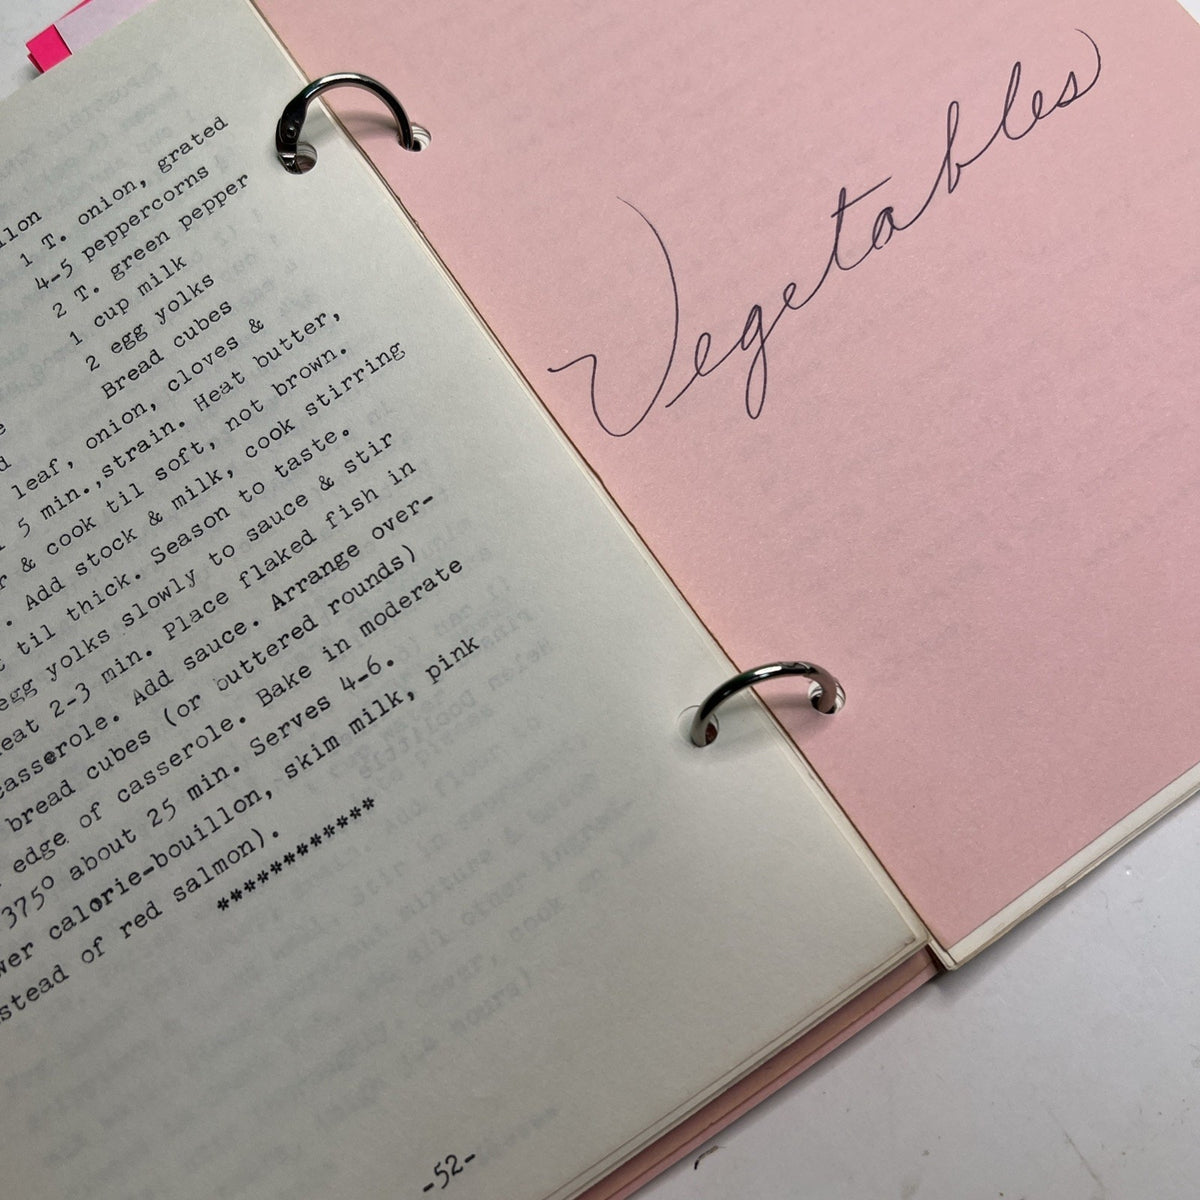 1 T. onion, grated
4-5 peppercorns
2 T. green pepper
1 cup milk
2 egg yolks
Bread cubes
leaf, onion, cloves &
5 min.,strain. Heat butter,
& cook til soft, not brown.
. Add stock & milk, cook stirring
til thick. Season to taste.
egg yolks slowly to sauce & stir
2-3 min. Place flaked fish in
casserole. Add sauce. Arrange over-
bread cubes (or buttered rounds)
edge of casserole. Bake in moderate
375° about 25 min. Serves 4-6.
calorie-bouillon, skim milk, pink
of red salmon).
************
-52-
Vegetables